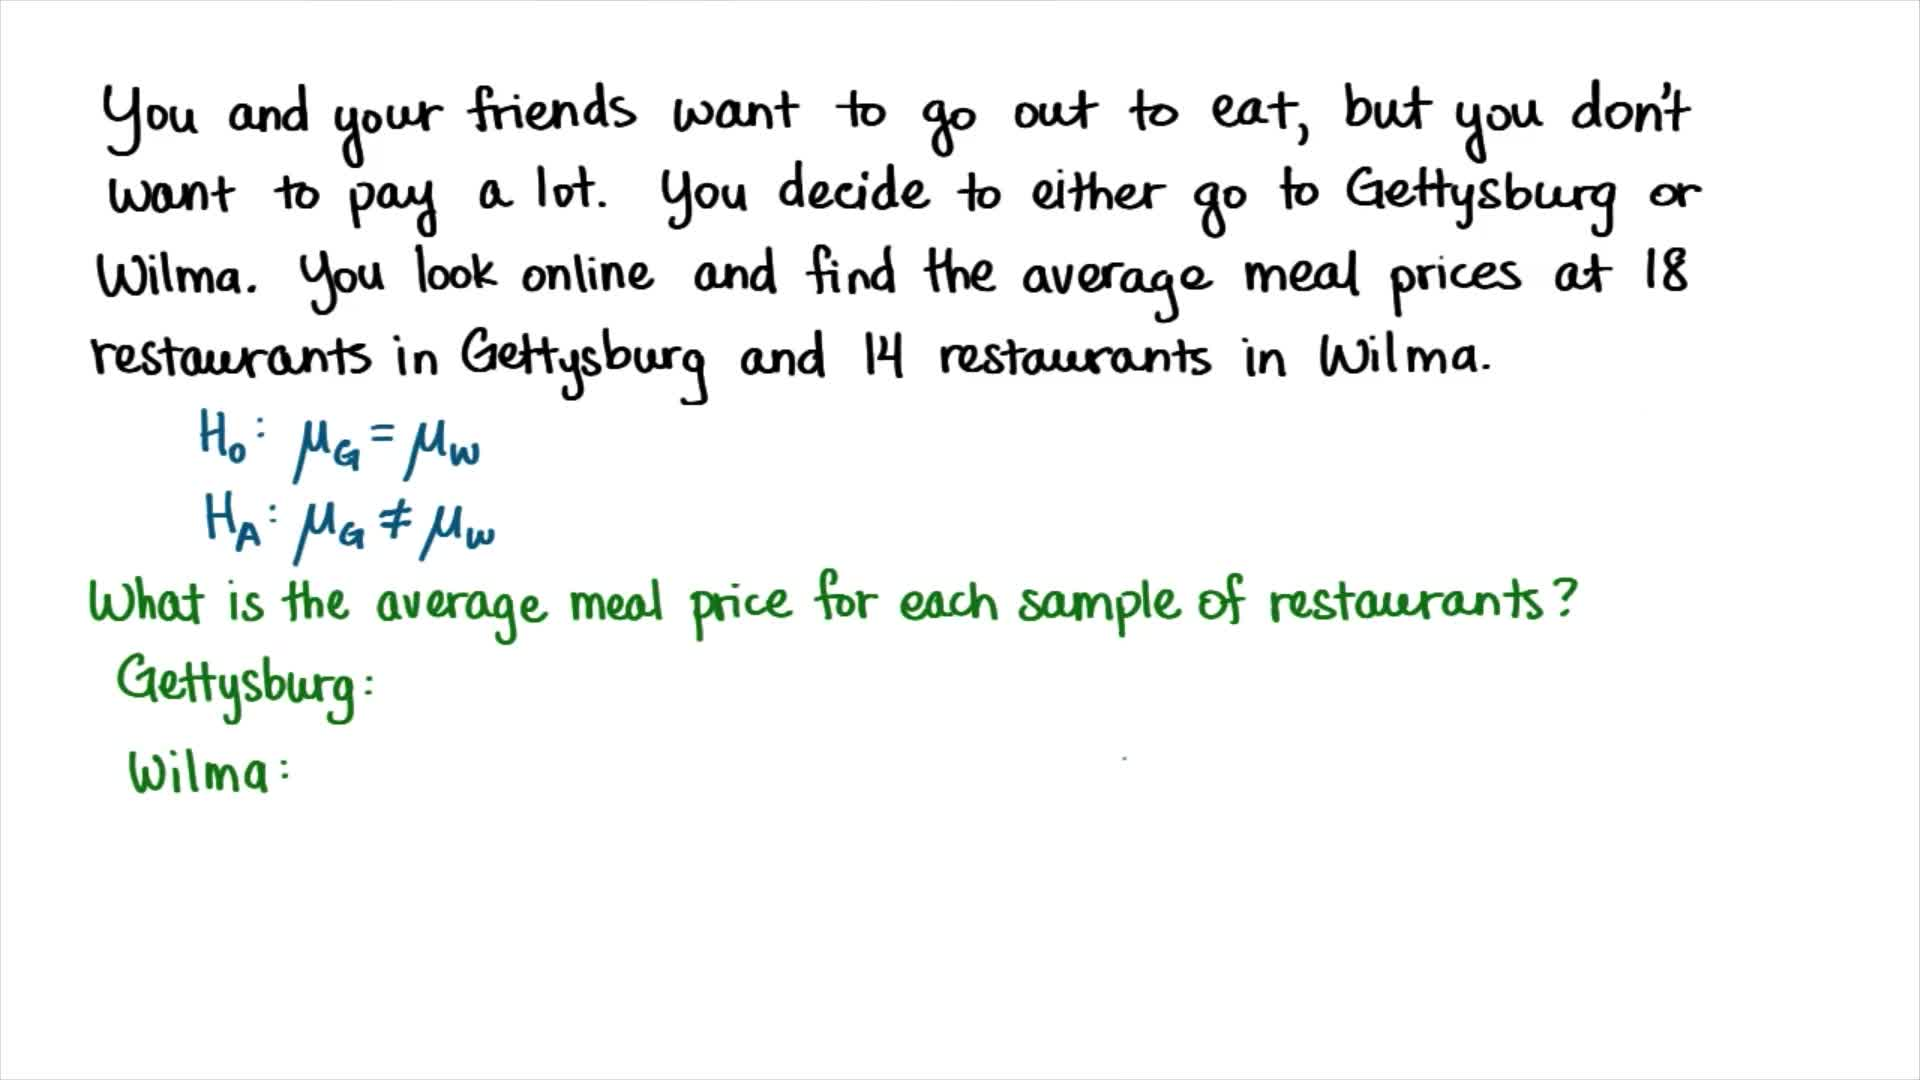 You and your friends want to go out to eat, but you don't
want to pay a lot. You decide to either go to Gettysburg or
Wilma. You look online and find the average meal prices at 18
restaurants in Gettysburg and 14 restaurants in Wilma.
H₀: μ_G = μ_W
H_A: μ_G ≠ μ_W
What is the average meal price for each sample of restaurants?
Gettysburg:
Wilma: